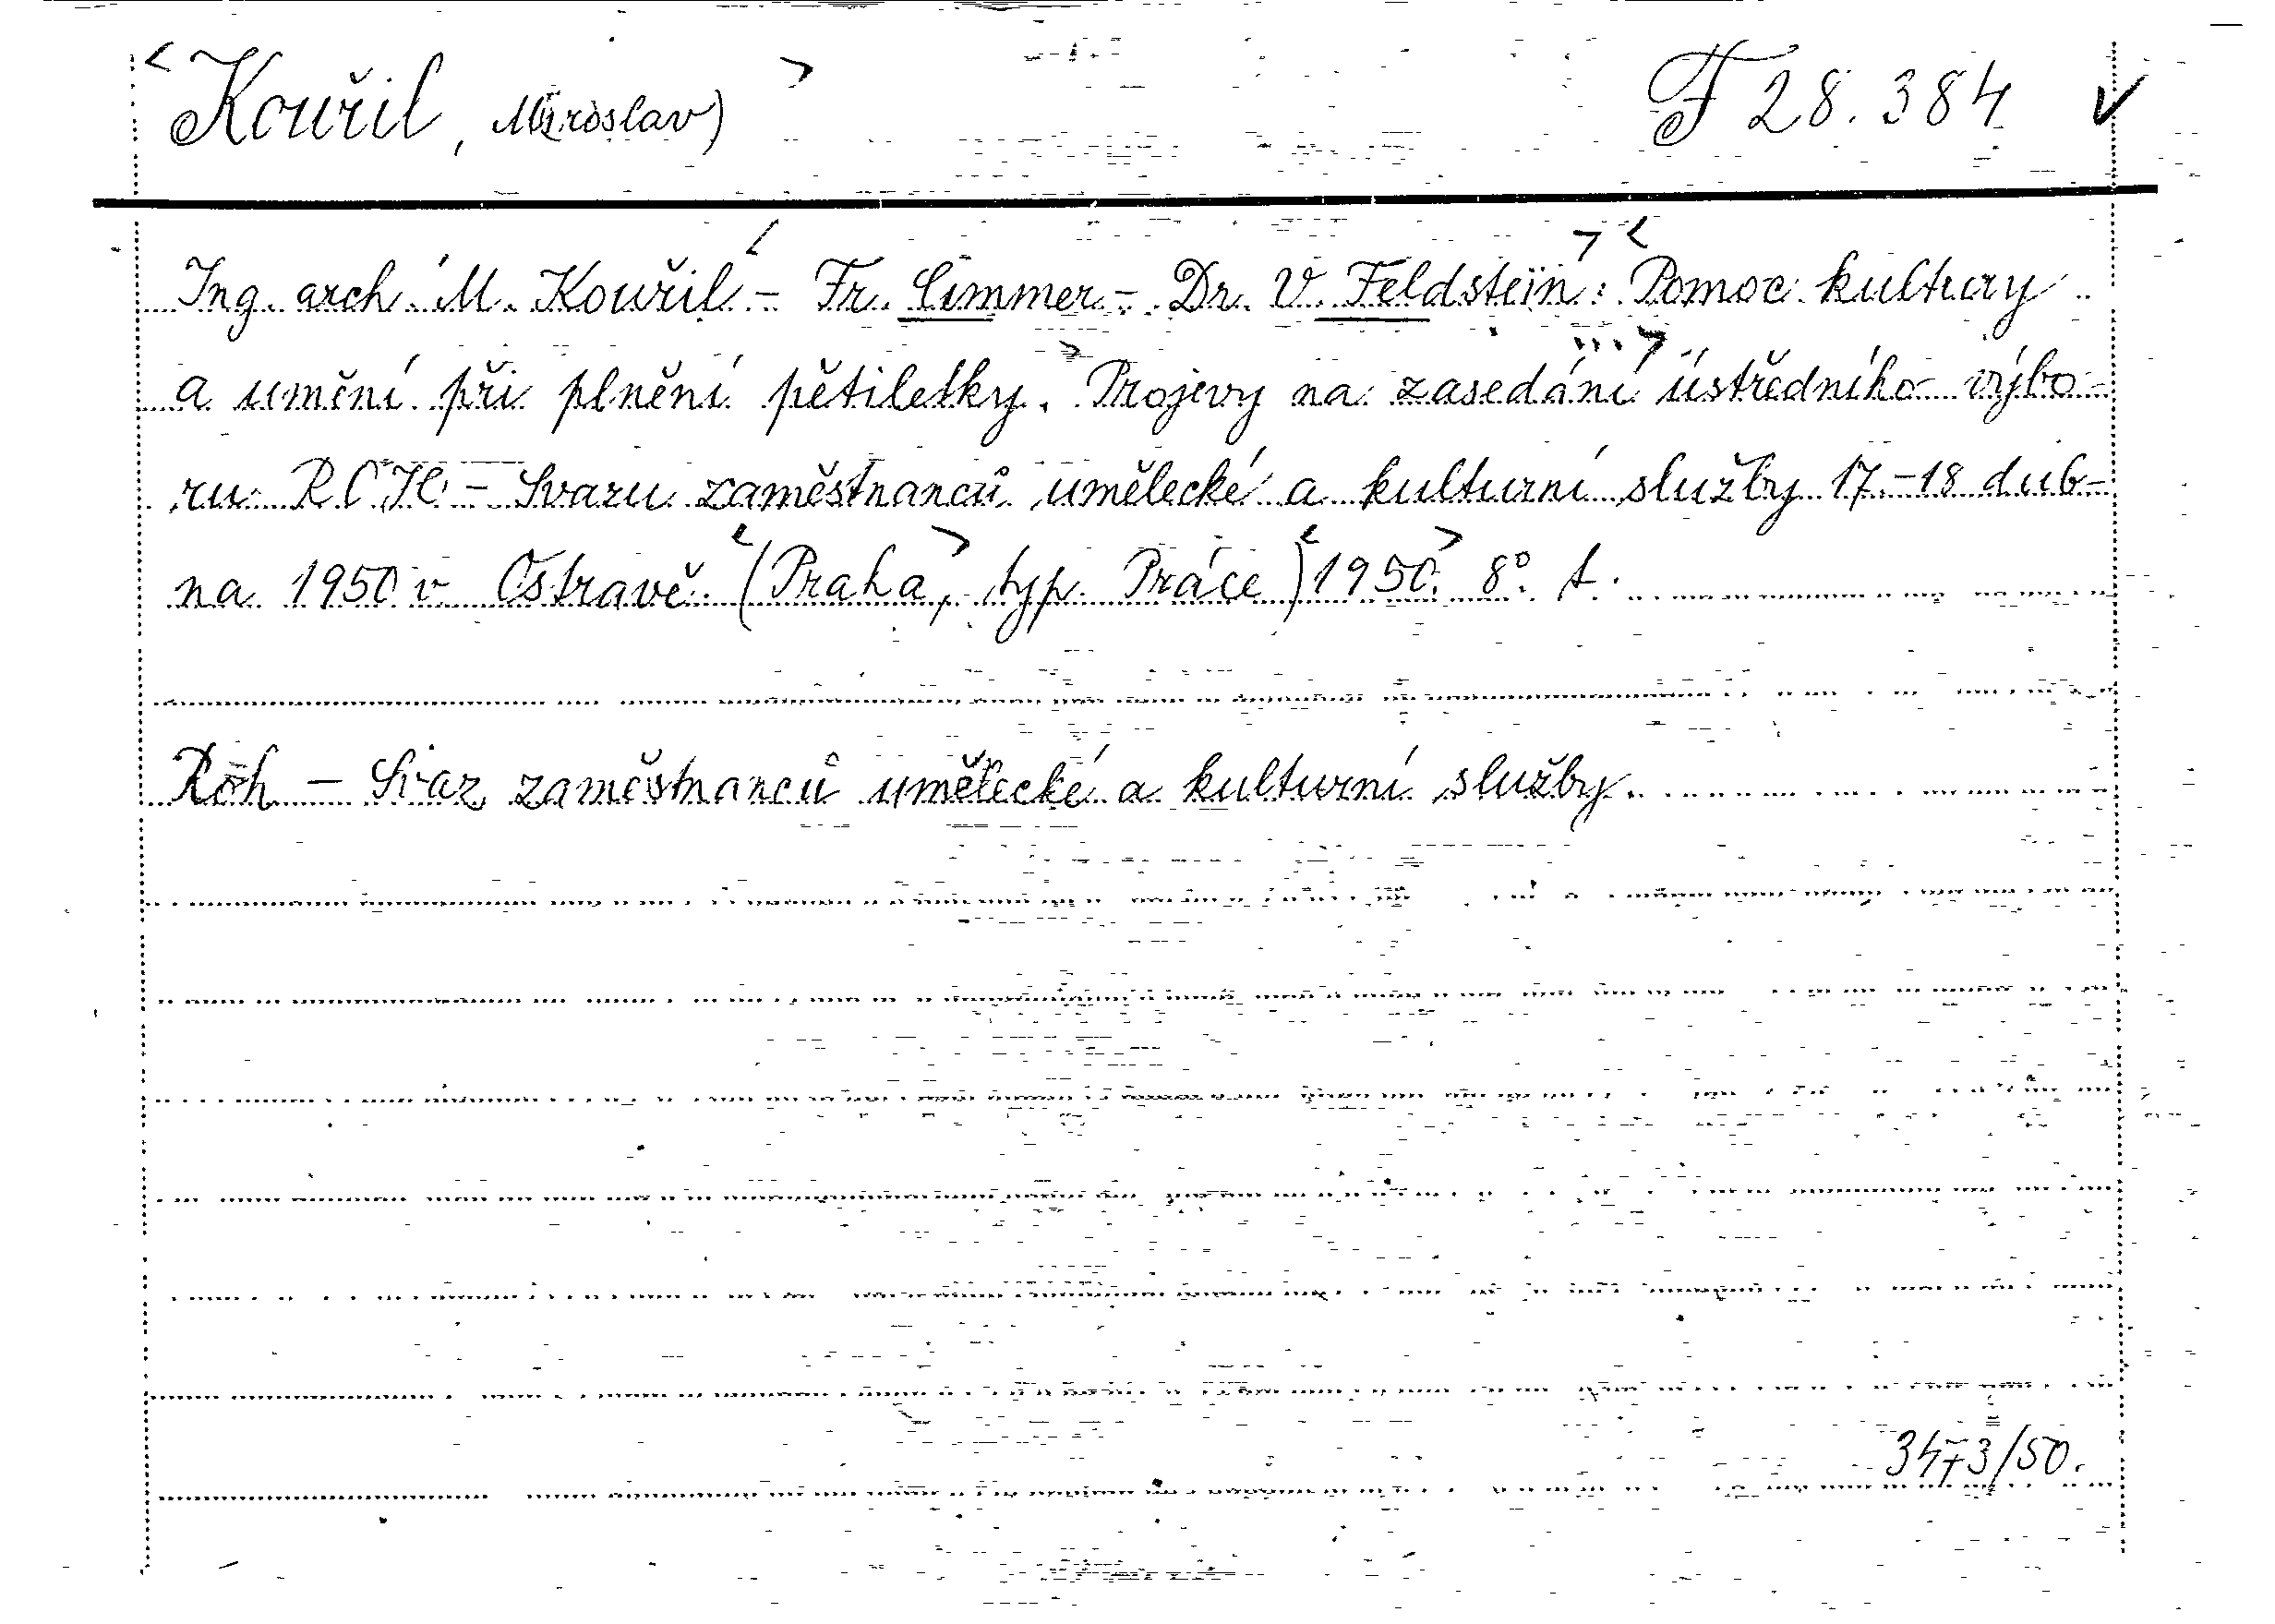 Kouřil, Miroslav) F 28.384
Ing. arch. M. Kouřil - Fr. Cimmer - Dr. V. Feldstein: Pomoc kultury
a umění při plnění pětiletky. Projevy na zasedání ústředního výbo-
ru ROH - Svazu zaměstnanců umělecké a kulturní služby 17.-18 dub-
na 1950 v Ostravě. (Praha, typ. Práce) 1950. 8°.
Roh - Svaz zaměstnanců umělecké a kulturní služby.
3473/50.